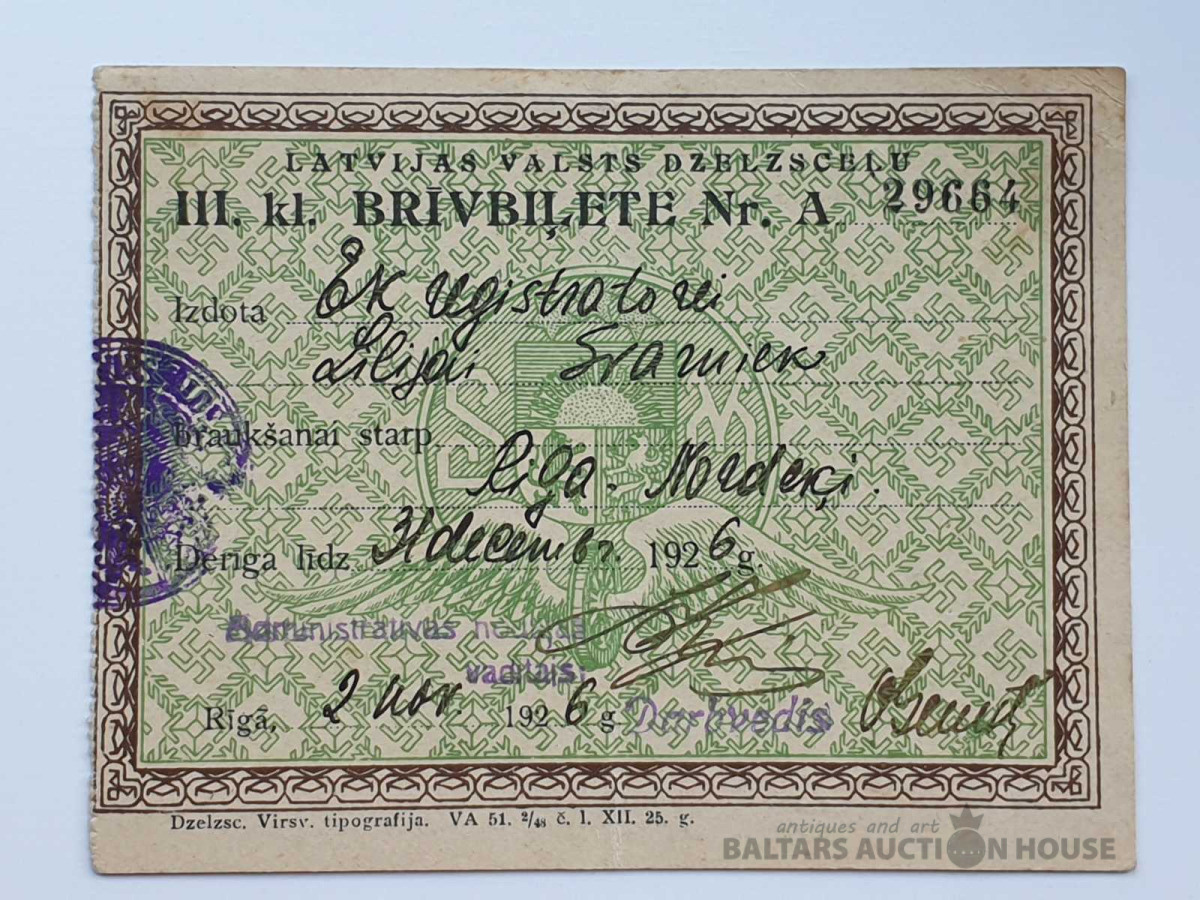 LATVIJAS VALSTS DZELZSCEĻU
III. kl. BRĪVBIĻETE Nr. A 29664
Izdota Ek registratorei
Lilijai Sramiek
Braukšanai starp
Rīga - Nordeķi.
Derīga līdz 31 decembr. 1926 g.
Administratīvās nodaļas
vadītājs:
Rīgā, 2 nov. 1926 g Darbvedis
Dzelzsc. Virsv. tipografija. VA 51. 2/48 č. l. XII. 25. g.
antiques and art
BALTARS AUCTION HOUSE